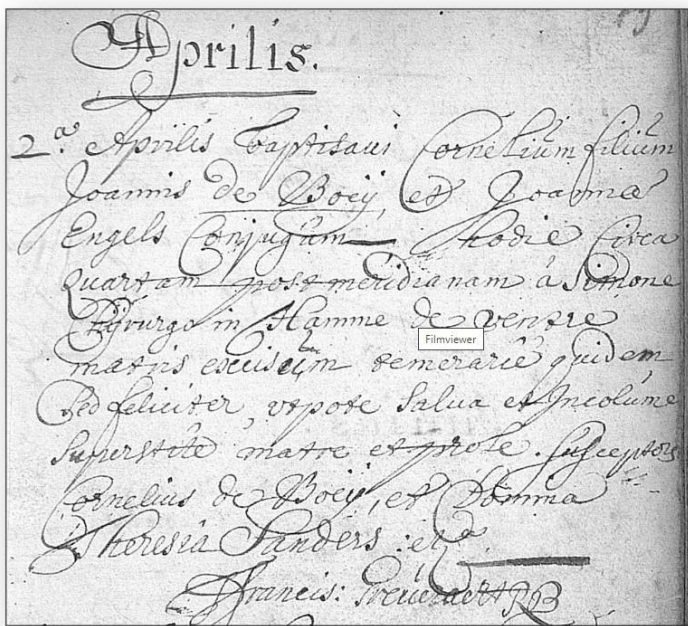 Aprilis.
2ª. Aprilis baptisavi Cornelium filium
Joannis de Boeÿ, et Joannæ
Engels Conjugum hodie circa
quartam post meridianam à Simone
Chÿrurgo in Hamme de ventre
Filmviewer
matris excisum temerarie quidem
sed feliciter, utpote salva et Incolume
superstite matre et prole. susceptores
Cornelius de Boeÿ, et Domina
Theresia Sanders: etc.
Francis: